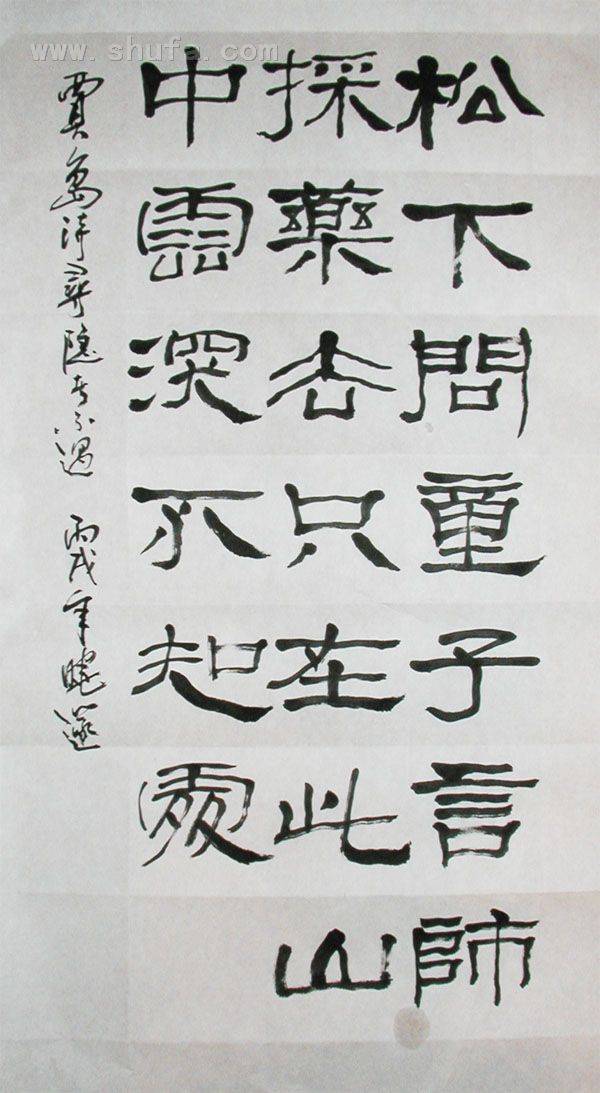 www.shufa.com
松下問童子言師
採藥去只在此山
中雲深不知處
賈島詩尋隱者不遇 丙戌年